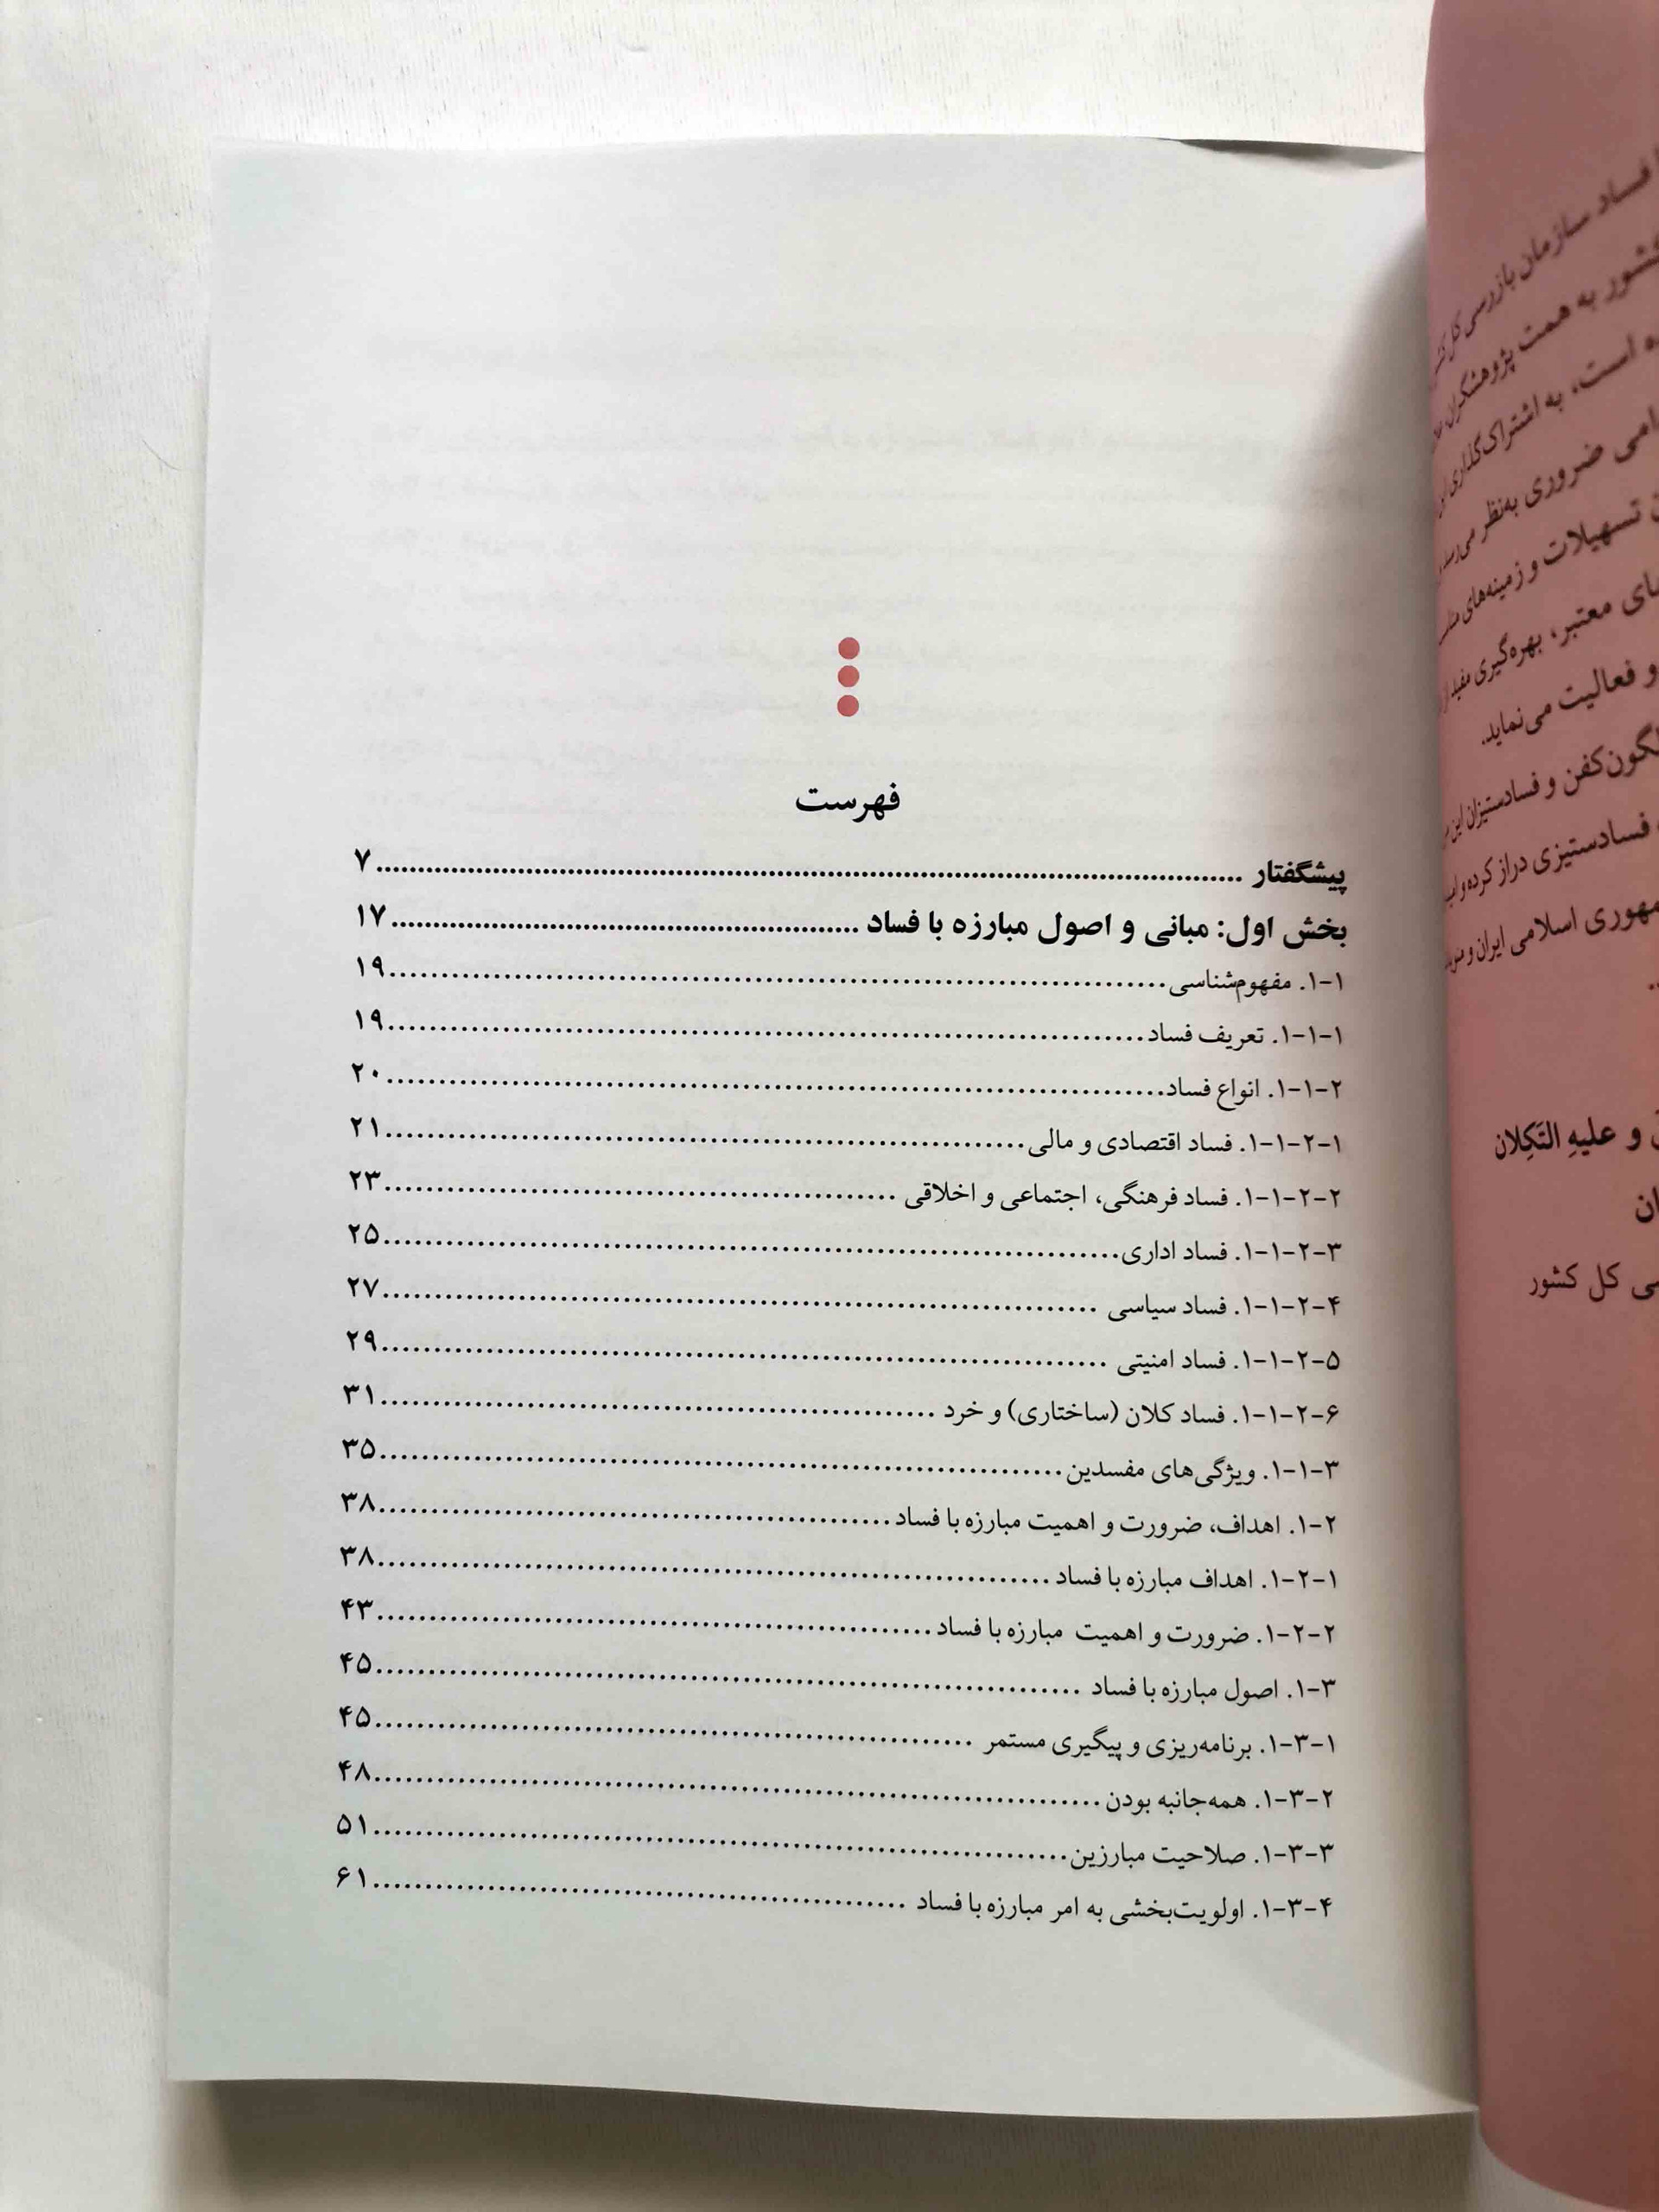 فساد سازمان بازرسی کل
کشور به همت پژوهشگران
است، به اشتراک‌گذاری
ضروری به‌نظر می‌رسد
تسهیلات و زمینه‌های
معتبر، بهره‌گیری مفید از
و فعالیت می‌نماید.
گون‌کفن و فسادستیزان این
فسادستیزی دراز کرده و
جمهوری اسلامی ایران و
و علیهِ التَکِلان
ان
کل کشور
فهرست
پیشگفتار ........................................ ۷
بخش اول: مبانی و اصول مبارزه با فساد ........................................ ۱۷
۱-۱. مفهوم‌شناسی ........................................ ۱۹
۱-۱-۱. تعریف فساد ........................................ ۱۹
۱-۱-۲. انواع فساد ........................................ ۲۰
۱-۱-۲-۱. فساد اقتصادی و مالی ........................................ ۲۱
۱-۱-۲-۲. فساد فرهنگی، اجتماعی و اخلاقی ........................................ ۲۳
۱-۱-۲-۳. فساد اداری ........................................ ۲۵
۱-۱-۲-۴. فساد سیاسی ........................................ ۲۷
۱-۱-۲-۵. فساد امنیتی ........................................ ۲۹
۱-۱-۲-۶. فساد کلان (ساختاری) و خرد ........................................ ۳۱
۱-۱-۳. ویژگی‌های مفسدین ........................................ ۳۵
۱-۲. اهداف، ضرورت و اهمیت مبارزه با فساد ........................................ ۳۸
۱-۲-۱. اهداف مبارزه با فساد ........................................ ۳۸
۱-۲-۲. ضرورت و اهمیت مبارزه با فساد ........................................ ۴۳
۱-۳. اصول مبارزه با فساد ........................................ ۴۵
۱-۳-۱. برنامه‌ریزی و پیگیری مستمر ........................................ ۴۵
۱-۳-۲. همه‌جانبه بودن ........................................ ۴۸
۱-۳-۳. صلاحیت مبارزین ........................................ ۵۱
۱-۳-۴. اولویت‌بخشی به امر مبارزه با فساد ........................................ ۶۱